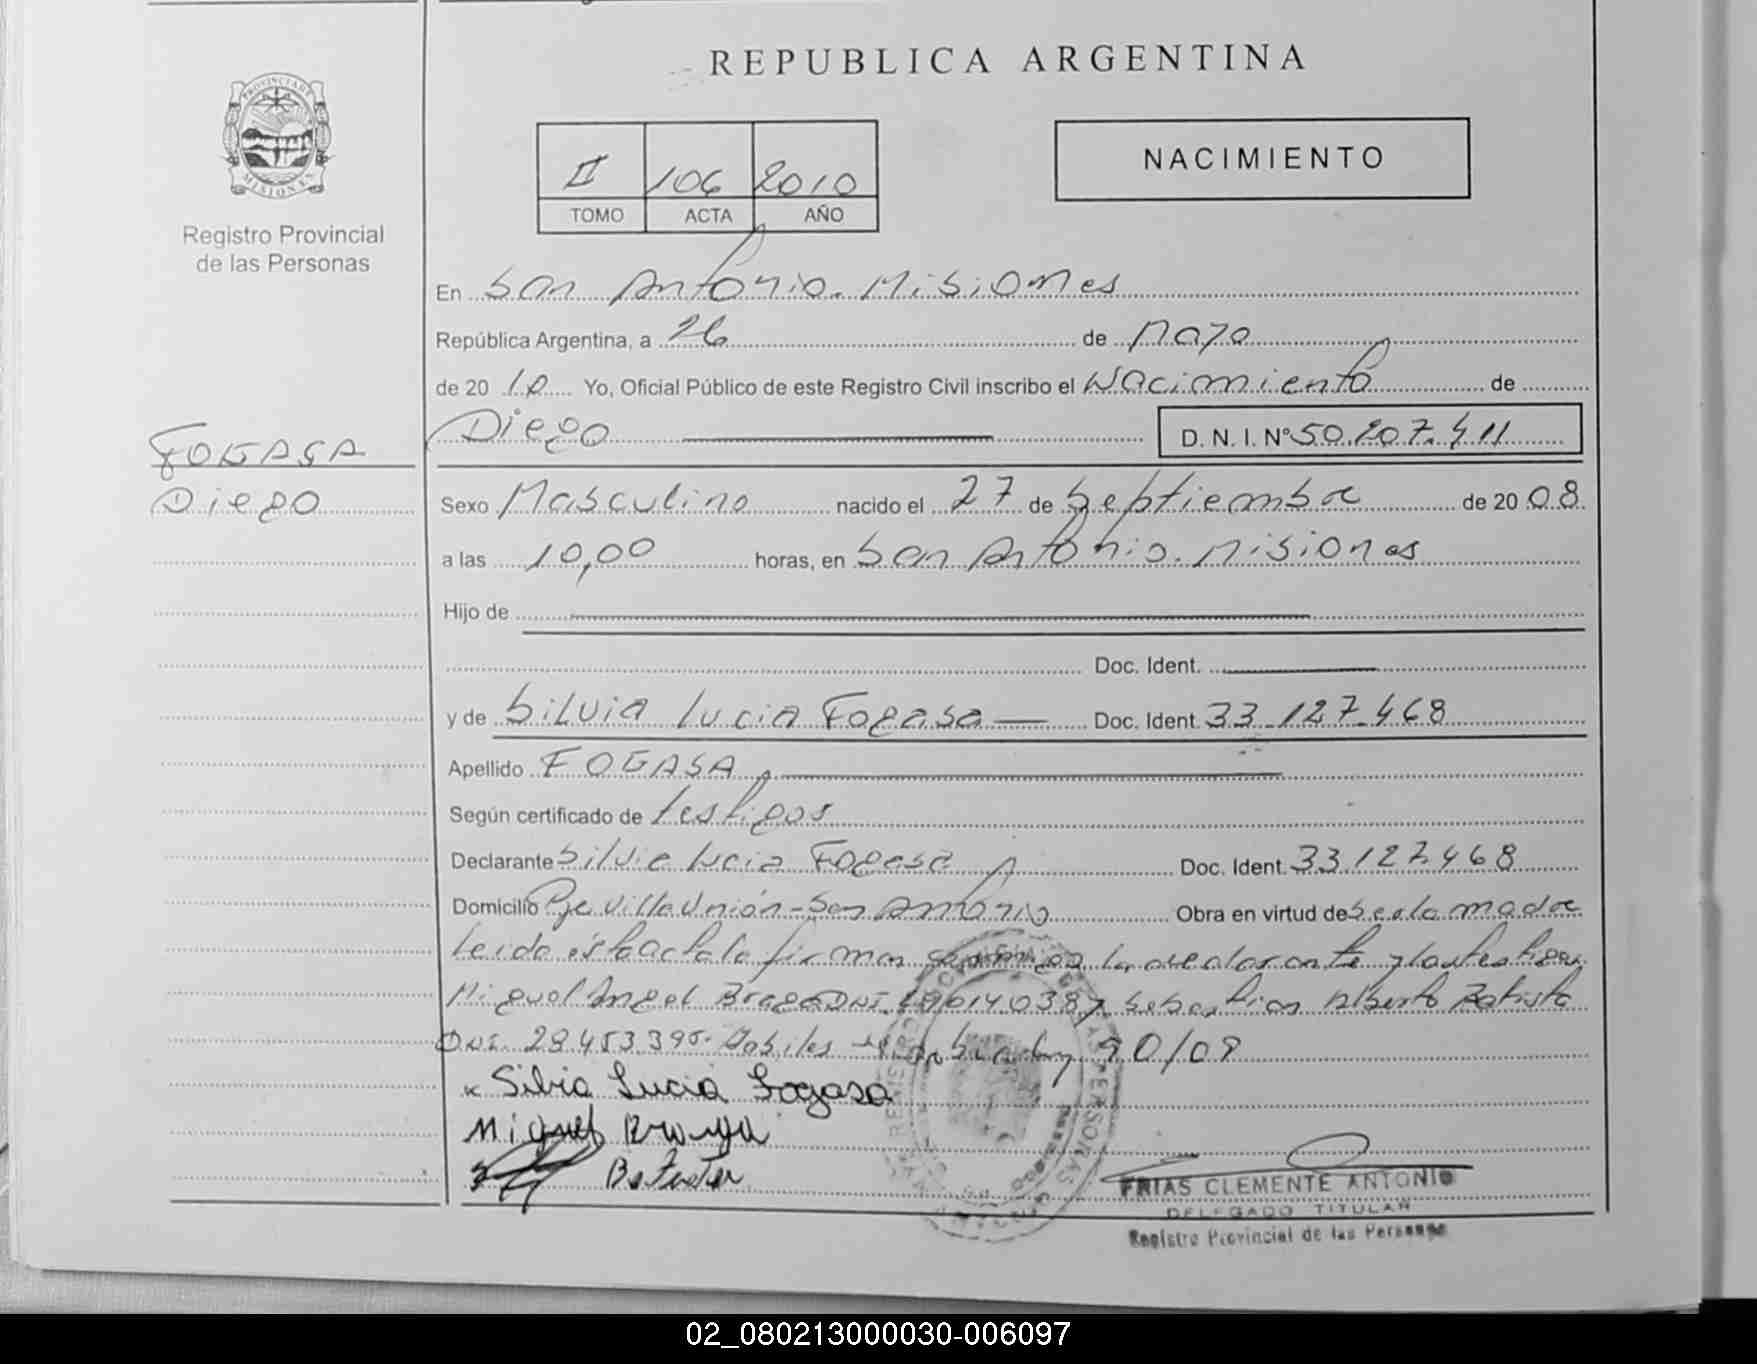 REPUBLICA ARGENTINA
PROVINCIA DE MISIONES
Registro Provincial
de las Personas
II 106 2010
TOMO ACTA AÑO
NACIMIENTO
En San Antonio. Misiones
República Argentina, a 26 de Mayo
de 20 10 Yo, Oficial Público de este Registro Civil inscribo el Nacimiento de
FOGASA
Diego
Diego D.N.I. Nº 50.207.411
Sexo Masculino nacido el 27 de Septiembre de 20 08
a las 10,00 horas, en San Antonio. Misiones
Hijo de
Doc. Ident.
y de Silvia Lucia Fogasa Doc. Ident. 33.127.468
Apellido FOGASA
Según certificado de testigos
Declarante Silvia Lucia Fogasa Doc. Ident. 33.127.468
Domicilio Pje Villa Unión - San Antonio Obra en virtud de ser la madre
Leida esta acta la firman conmigo la declarante y los testigos
Miguel Angel Braga DNI Sebastian Alberto Batista
DNI. 28.453.395. Habiles 90/09
x Silvia Lucia Fogasa
Miguel Braga
Batista
FRIAS CLEMENTE ANTONIO
DELEGADO TITULAR
Registro Provincial de las Personas
02_080213000030-006097